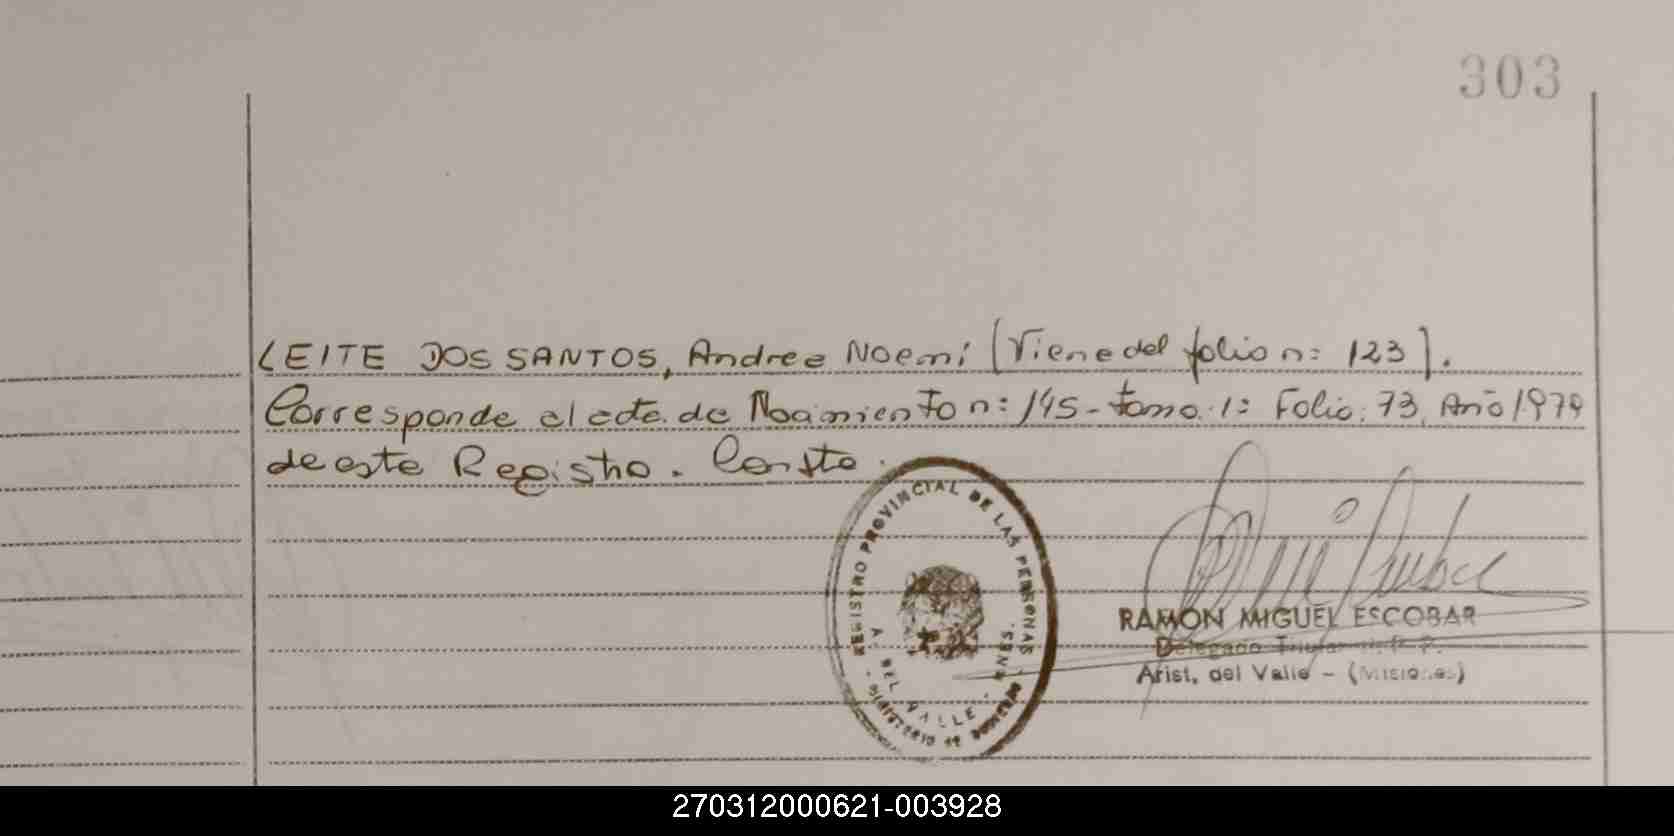 303
LEITE DOS SANTOS, Andrea Noemi (Viene del folio n: 123).
Corresponde al acta de Nacimiento n: 145 - tomo: 1: Folio: 73, Año 1979
de este Registro. Consta.
REGISTRO PROVINCIAL DE LAS PERSONAS
A. DEL VALLE - MNES.
MINISTERIO DE GOBIERNO
RAMON MIGUEL ESCOBAR
Delegado Titular R. P. P.
Arist. del Valle - (Misiones)
270312000621-003928